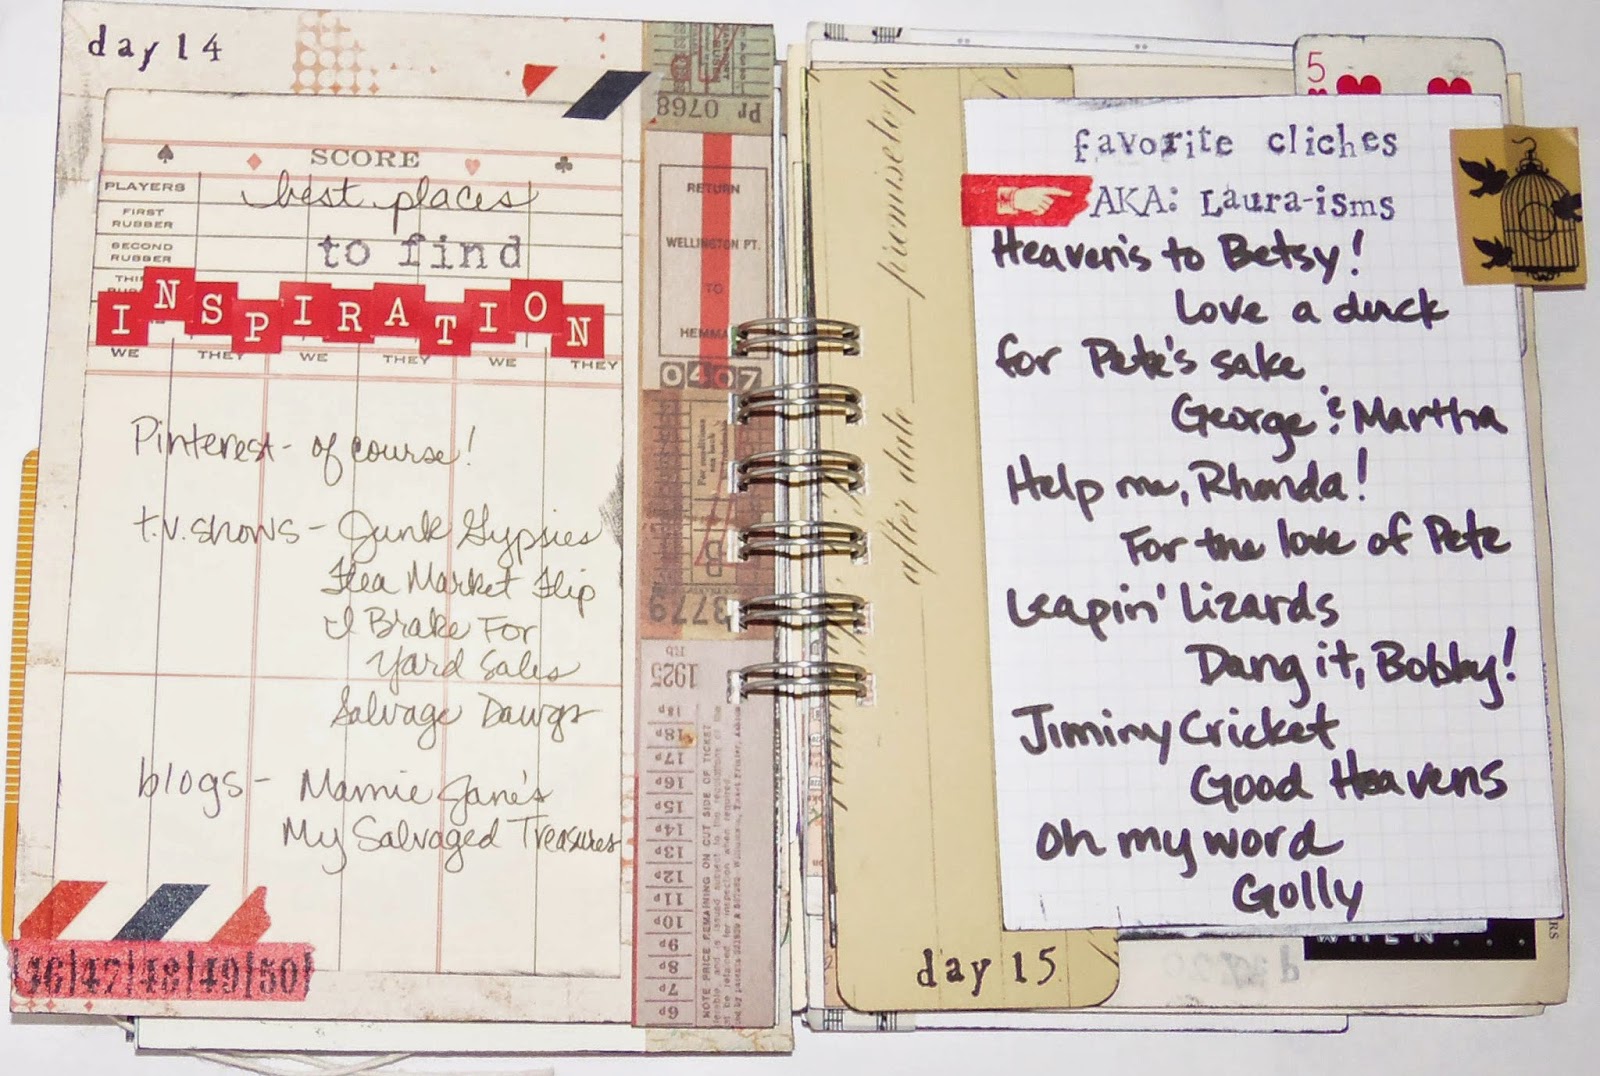 day 14
SCORE
PLAYERS
best places
FIRST
RUBBER
SECOND
RUBBER
to find
INSPIRATION
WE THEY WE THEY WE THEY
Pinterest - of course!
t.v. shows - Junk Gypsies
Flea Market Flip
I Brake For
Yard Sales
Salvage Dawgs
blogs - Mamie Jane's
My Salvaged Treasures
46|47|48|49|50
Pp 0768
RETURN
WELLINGTON PT.
TO
HEMMA
0407
For conditions
see back
B
3779
Rb
1925
18p
17p
16p
15p
14p
13p
12p
11p
10p
9p
8p
7p
6p
NOTE PRICE REMAINING ON CUT SIDE OF TICKET
after date
5
favorite cliches
AKA: Laura-isms
Heaven's to Betsy!
Love a duck
for Pete's sake
George & Martha
Help me, Rhonda!
For the love of Pete
Leapin' Lizards
Dang it, Bobby!
Jiminy Cricket
Good Heavens
oh my word
Golly
WHEN...
day 15